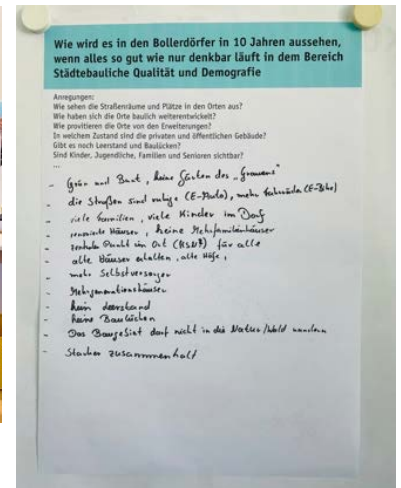 Wie wird es in den Bollerdörfer in 10 Jahren aussehen,
wenn alles so gut wie nur denkbar läuft in dem Bereich
Städtebauliche Qualität und Demografie
Anregungen:
Wie sehen die Straßenräume und Plätze in den Orten aus?
Wie haben sich die Orte baulich weiterentwickelt?
Wie provitieren die Orte von den Erweiterungen?
In welchem Zustand sind die privaten und öffentlichen Gebäude?
Gibt es noch Leerstand und Baulücken?
Sind Kinder, Jugendliche, Familien und Senioren sichtbar?
...
- Grün und Bunt, keine Gärten des „Grauens"
- die Straßen sind ruhige (E-Auto), mehr Fahrräder (E-Bike)
- viele Familien, viele Kinder im Dorf
- renovierte Häuser, keine Mehrfamilienhäuser
- zentraler Punkt im Ort für alle
- alte Häuser erhalten, alte Höfe,
- mehr Selbstversorger
- Mehrgenerationshäuser
- kein Leerstand
- keine Baulücken
- Das Baugebiet darf nicht in der Natur/Wald
- Starker Zusammenhalt